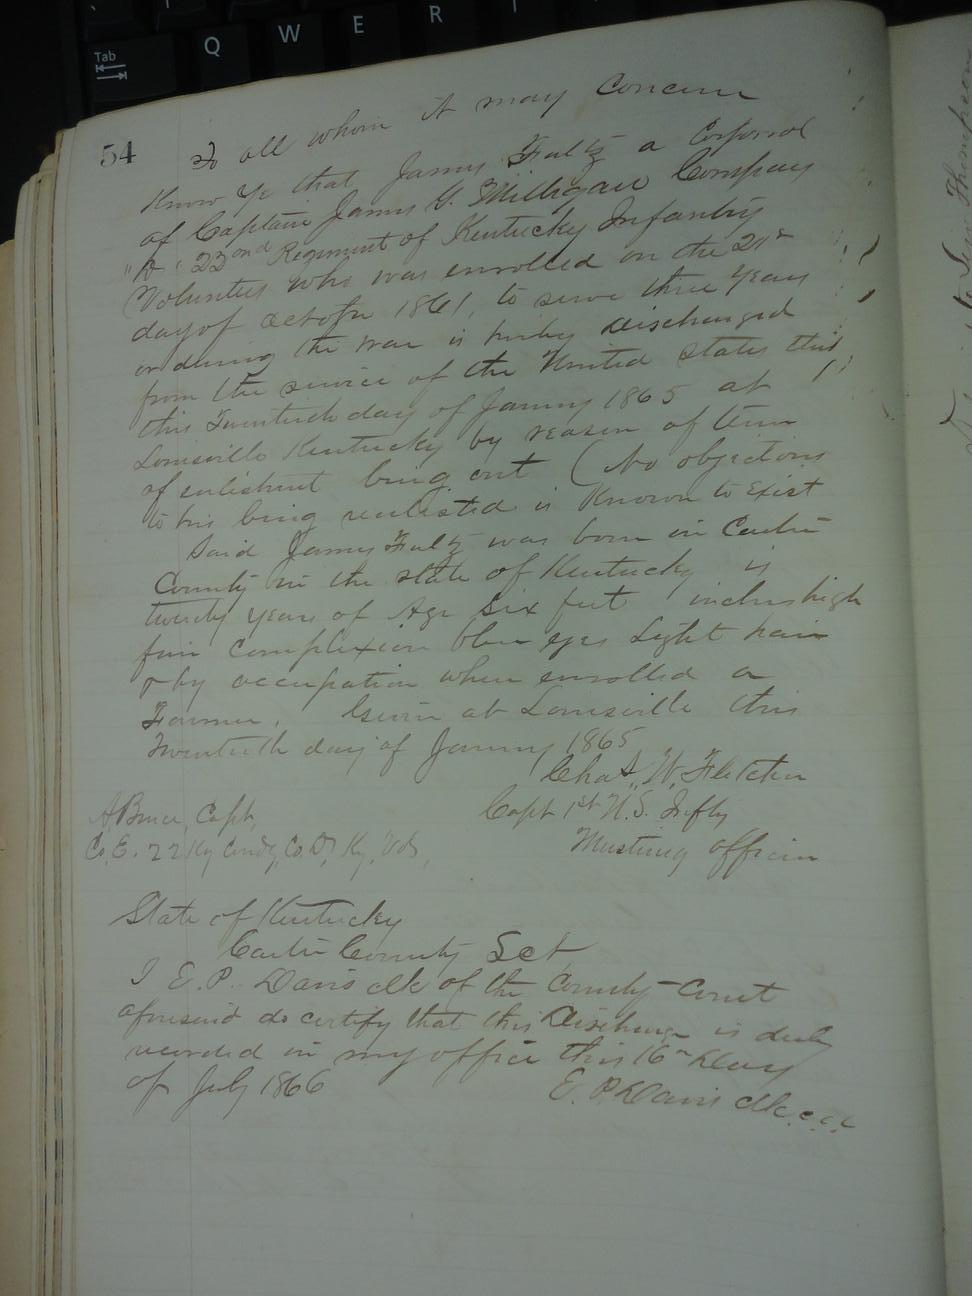 Tab Q W E R
54
To all whom it may Concern
Know ye that James Fultz a Corporal
of Captain James G. Milligan Company
"D" 22nd Regiment of Kentucky Infantry
Volunteers who was enrolled on the
day of October 1861, to serve three years
or during the war is hereby discharged
from the service of the United States this
this Twentieth day of January 1865 at
Louisville Kentucky by reason of term
of enlistment being out (No objections
to his being reenlisted is Known to Exist
Said James Fultz was born in Carter
County in the state of Kentucky is
twenty years of Age Six feet inches high
fair Complexion blue eyes Light hair
& by occupation when enrolled a
Farmer. Given at Louisville this
Twentieth day of January 1865
Chas. W. Fletcher
Capt 1st U.S. Infty
Mustering officer
A. Bruce, Capt,
Co. E. 22 Ky Comdg Co. D, Ky. Vols,
State of Kentucky
Carter County Sct
I E. P. Davis clk of the County Court
aforesaid do certify that this Discharge is duly
recorded in my office this 16th day
of July 1866
E. P. Davis clk. c.c.c